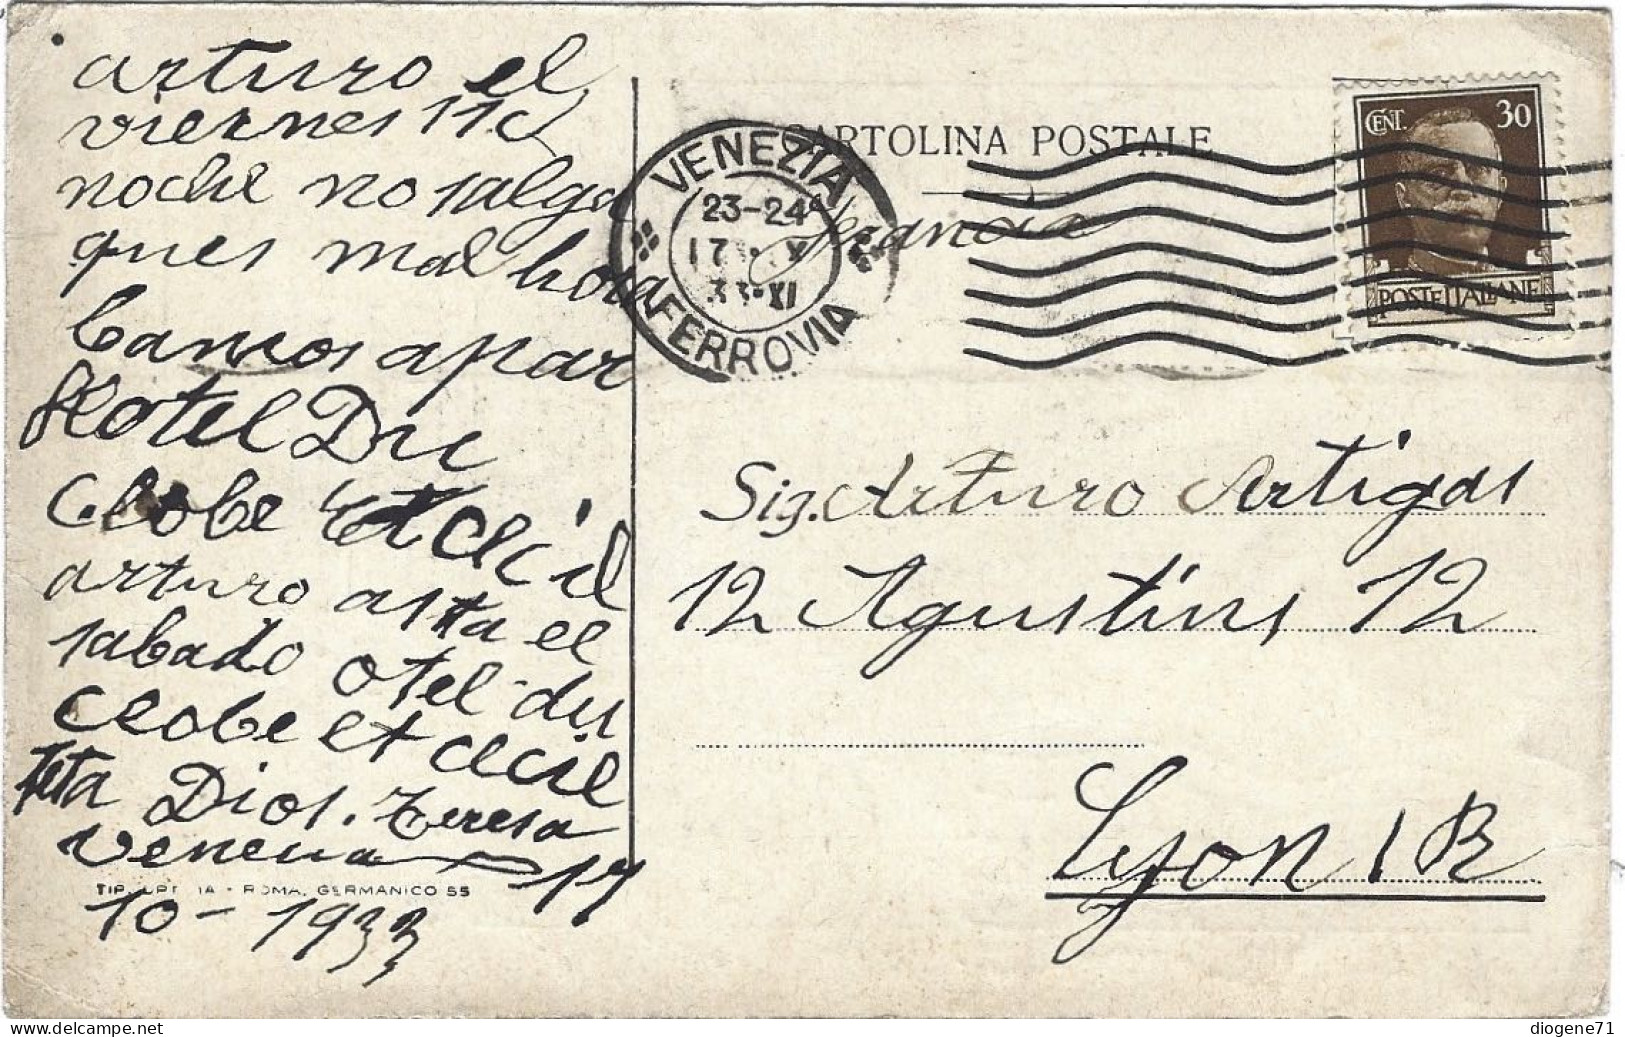 arturo el
viernes 11 d
noche no salga
ques mal hora
bamos apar
Hotel Du
Clobe et Cecil
arturo asta el
sabado otel du
Clobe et Cecil
Dios. Teresa
Venecia 17
TIP. - ROMA. GERMANICO 55
10-1933
CARTOLINA POSTALE
Francia
VENEZIA
23-24
17 X
33·XI
FERROVIA
CENT. 30
POSTE ITALIANE
Sig. Arturo Artigas
12 Agustins 12
Lyon 1 R
diogene71